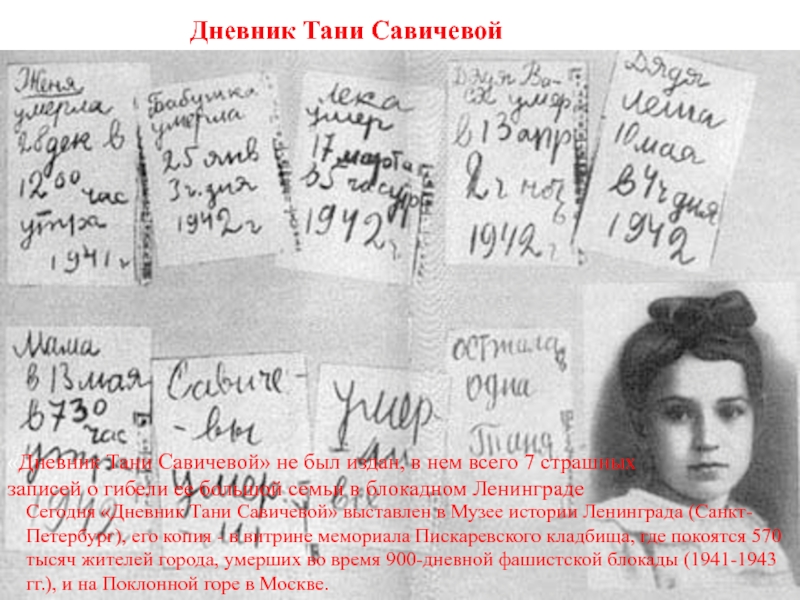 Дневник Тани Савичевой
Женя
умерла
28 дек в
12 00 час
утра
1941 г
Бабушка
умерла
25 янв
3 ч. дня
1942 г
Лека
умер
17 марта
в 5 час утр
1942 г
Дядя Ва-
ся умер
в 13 апр
2 ч ноч
1942 г
Дядя
Леша
10 мая
в 4 ч дня
1942
Мама
в 13 мая
в 7 30
час
утра
1942
Савиче-
-вы
умер-
ли
умер-
ли
все
одна
Таня
Дневник Тани Савичевой» не был издан, в нем всего 7 страшных
записей о гибели ее большой семьи в блокадном Ленинграде
Сегодня «Дневник Тани Савичевой» выставлен в Музее истории Ленинграда (Санкт-
Петербург), его копия - в витрине мемориала Пискаревского кладбища, где покоятся 570
тысяч жителей города, умерших во время 900-дневной фашистской блокады (1941-1943
гг.), и на Поклонной горе в Москве.